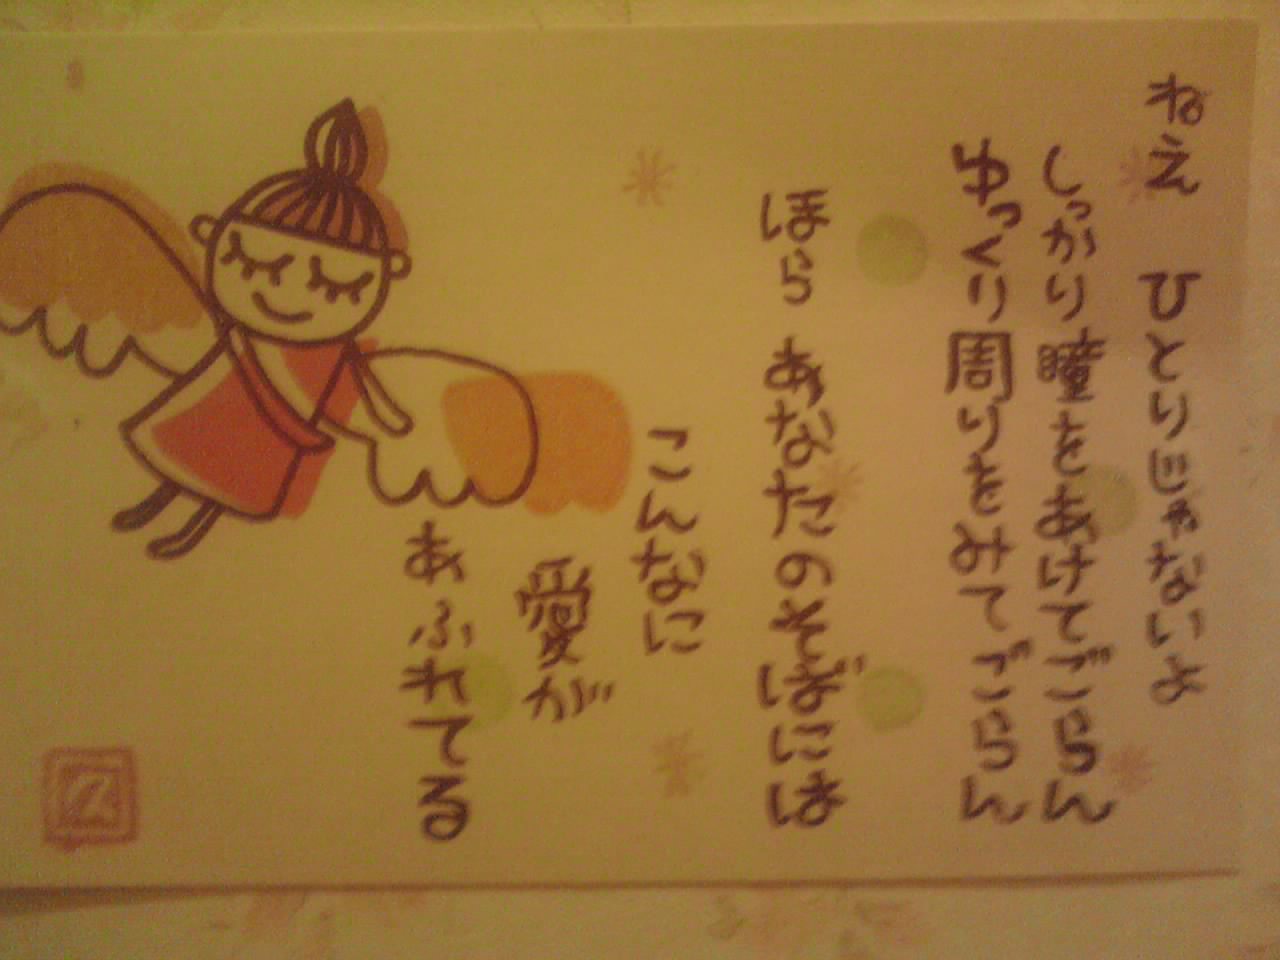 ねえ ひとりじゃないよ
しっかり瞳をあけてごらん
ゆっくり周りをみてごらん
ほら あなたのそばには
こんなに
愛が
あふれてる
久